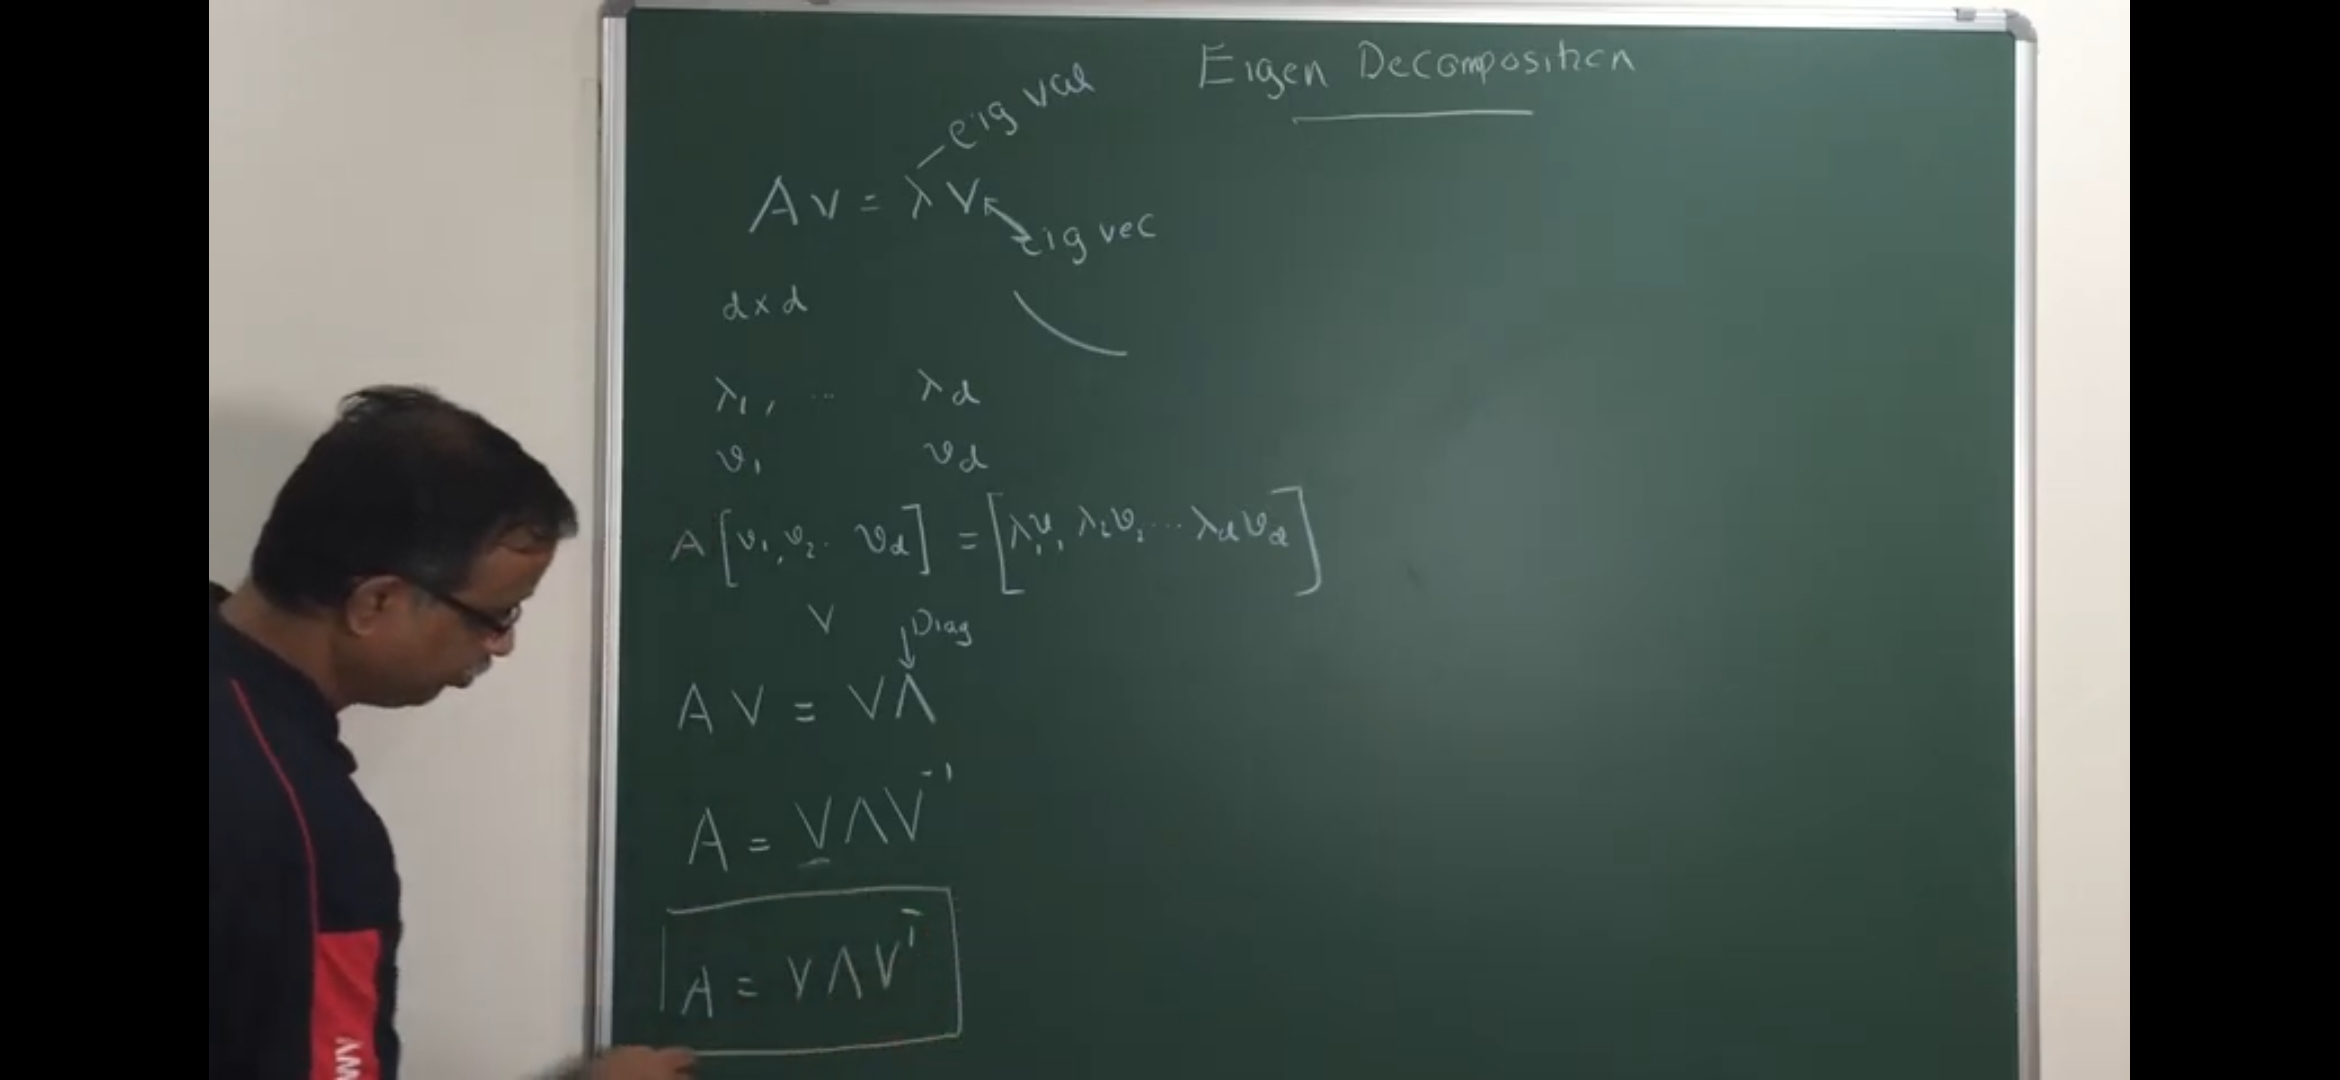 Eigen Decomposition
eig val
A v = λ v
eig vec
d x d
λ₁, ... λd
v₁ vd
A [v₁, v₂ .. vd] = [λ₁v₁, λ₂v₂ ... λdvd]
V
Diag
A V = V Λ
A = V Λ V⁻¹
A = V Λ Vᵀ